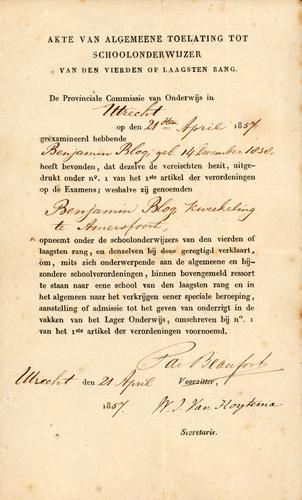 AKTE VAN ALGEMEENE TOELATING TOT
SCHOOLONDERWIJZER
VAN DEN VIERDEN OF LAAGSTEN RANG.
De Provinciale Commissie van Onderwijs in
Utrecht
op den 21sten April 1857
geëxamineerd hebbende
Benjamin Blog, geb 14 December 1838.
heeft bevonden, dat dezelve de vereischten bezit, uitge-
drukt onder n°. 1 van het 1ste artikel der verordeningen
op de Examens; weshalve zij genoemden
Benjamin Blog, kweekeling
te Amersfoort,
opneemt onder de schoolonderwijzers van den vierden of
laagsten rang, en denzelven bij deze geregtigd verklaart,
om, mits zich onderwerpende aan de algemeene en bij-
zondere schoolverordeningen, binnen bovengemeld ressort
te staan naar eene school van den laagsten rang en in
het algemeen naar het verkrijgen eener speciale beroeping,
aanstelling of admissie tot het geven van onderrigt in de
vakken van het Lager Onderwijs, omschreven bij n°. 1
van het 1ste artikel der verordeningen voornoemd.
P de Beaufort
Utrecht den 21 April Voorzitter,
1857. W. J. Van Hoytema
Secretaris.